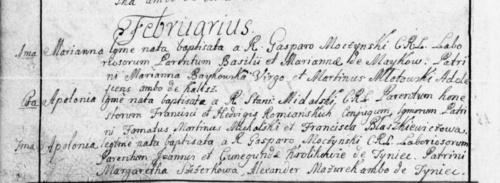 Februarius.
1ma Marianna lgme nata baptisata a R. Gasparo Moczynski C.R.L. Labo
riosorum Parentum Basilii et Marianna de Maykow. Patri
ni Marianna Baykowska Virgo et Martinus Mlotowski Adole
scens ambo de
Apolonia lgme nata baptisata a R. Stanis: Midalski, C.R.L. Parentum hone
storum Francisci et Hedvigis Romianskich Conjugum lgmorum Patri
ni Fornatus Martinus Michalski et Francisca Blaszkiewiczowa.
Apolonia, legitime nata baptisata a R. Gasparo Moczynski C.R.L. Laboriosorum
Parentum Joannis et Cunegunda Krolikowie de Tyniec. Patrini
Margaretha Alexander Mazurek ambo de Tyniec.